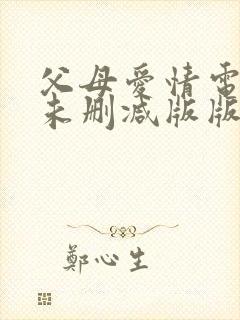 父母愛情電
未删减版版
鄭心生